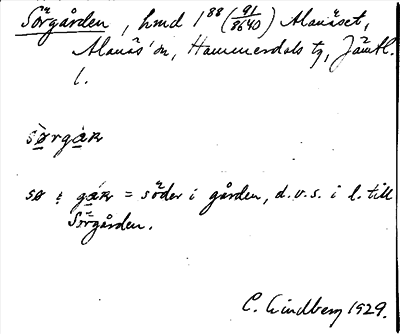 Sörgården, hmd 1⁸⁸ (91/8640) Alanäset,
Alanäs sn, Hammerdals tg, Jämtl.
l.
sørgaʀ
sø i gaʀ = söder i gården, d.v.s. i l. till
Sörgården.
C. Lindberg 1929.